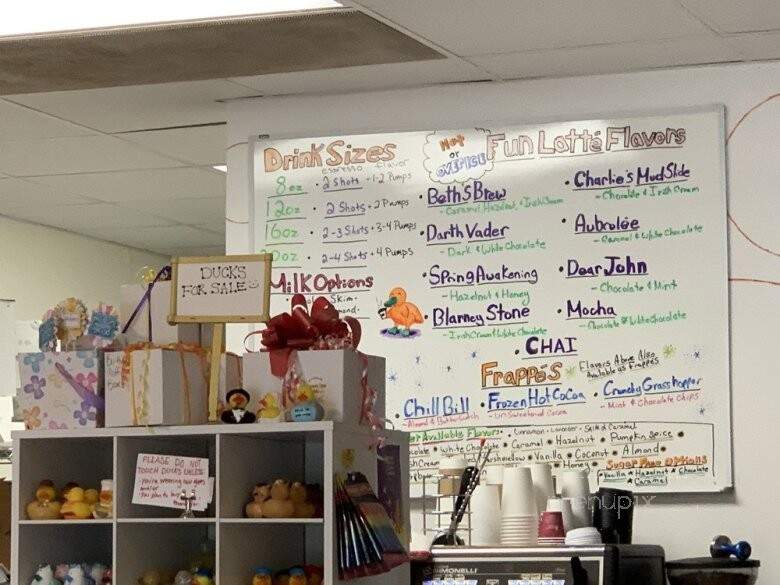 Drink Sizes
espresso flavor
8oz • 2 Shots + 1-2 Pumps
12oz • 2 Shots + 2 Pumps
16oz • 2-3 Shots + 3-4 Pumps
20oz • 2-4 Shots + 4 Pumps
Milk Options
Skim -
HOT or ICED
Fun Latté Flavors
• Beth's Brew
- Caramel, Hazelnut, + Irish Cream
• Darth Vader
- Dark & White Chocolate
• Spring Awakening
- Hazelnut & Honey
• Blarney Stone
- Irish Cream & White Chocolate
• Charlie's MudSlide
- Chocolate & Irish Cream
• Aubrolée
- Caramel & White Chocolate
• Dear John
- Chocolate & Mint
• Mocha
- Chocolate & White Chocolate
• CHAI
Frappés
Flavors Above Also
Available as Frappés
• Chill Bill
- Almond & Butterscotch
• Frozen Hot Cocoa
- Unsweetened Cocoa
• Crunchy Grasshopper
- Mint & Chocolate Chips
Available Flavors • Cinnamon • Lavender • Salted Caramel
White Chocolate • Caramel • Hazelnut • Pumpkin Spice
Marshmallow • Vanilla • Coconut • Almond
Honey
Sugar Free Options
Vanilla • Hazelnut • Chocolate
• Caramel
DUCKS
FOR SALE
PLEASE DO NOT
TOUCH DUCKS UNLESS
menupix
SIMONELLI